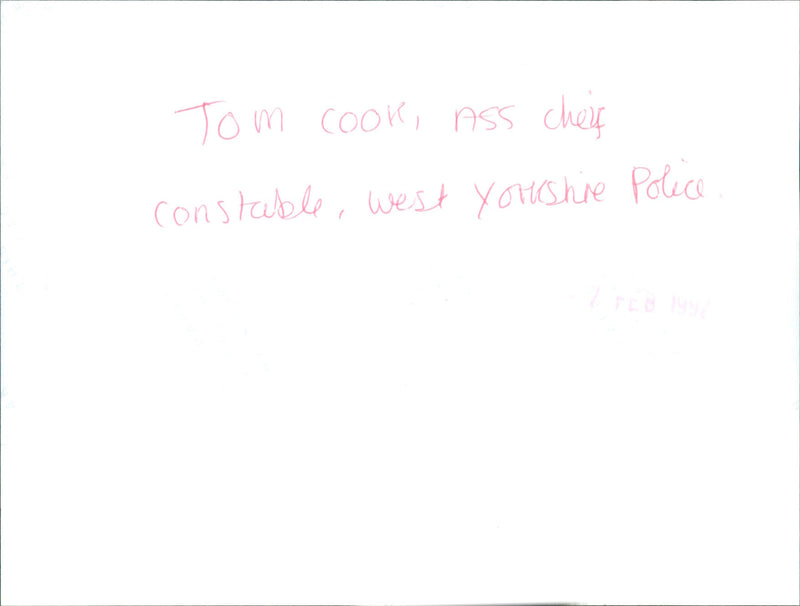 Tom Cook, Ass cheif
constable, West Yorkshire Police.
FEB